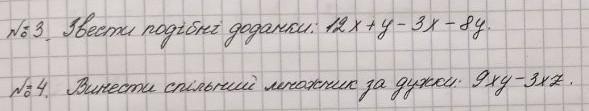 №3. Звести подібні доданки: 12x+y-3x-8y.
№4. Винести спільний множник за дужки: 9xy-3xz.